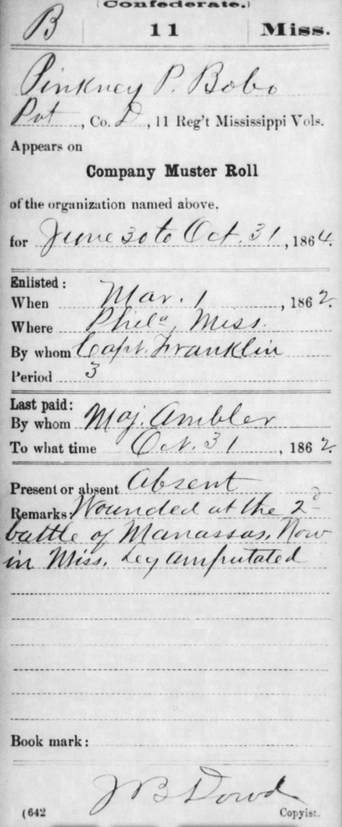 (Confederate.)
B 11 Miss.
Pinkney P. Bobo
Pvt, Co. D, 11 Reg't Mississippi Vols.
Appears on
Company Muster Roll
of the organization named above,
for June 30 to Oct. 31, 1864.
Enlisted:
When Mar. 1, 1862.
Where Phila, Miss.
By whom Capt. Franklin
Period 3
Last paid:
By whom Maj. Ambler
To what time Oct. 31, 1862.
Present or absent Absent
Remarks Wounded at the 2d
battle of Manassas, Now
in Miss. Leg amputated
Book mark:
J B Dowd
(642 Copyist.